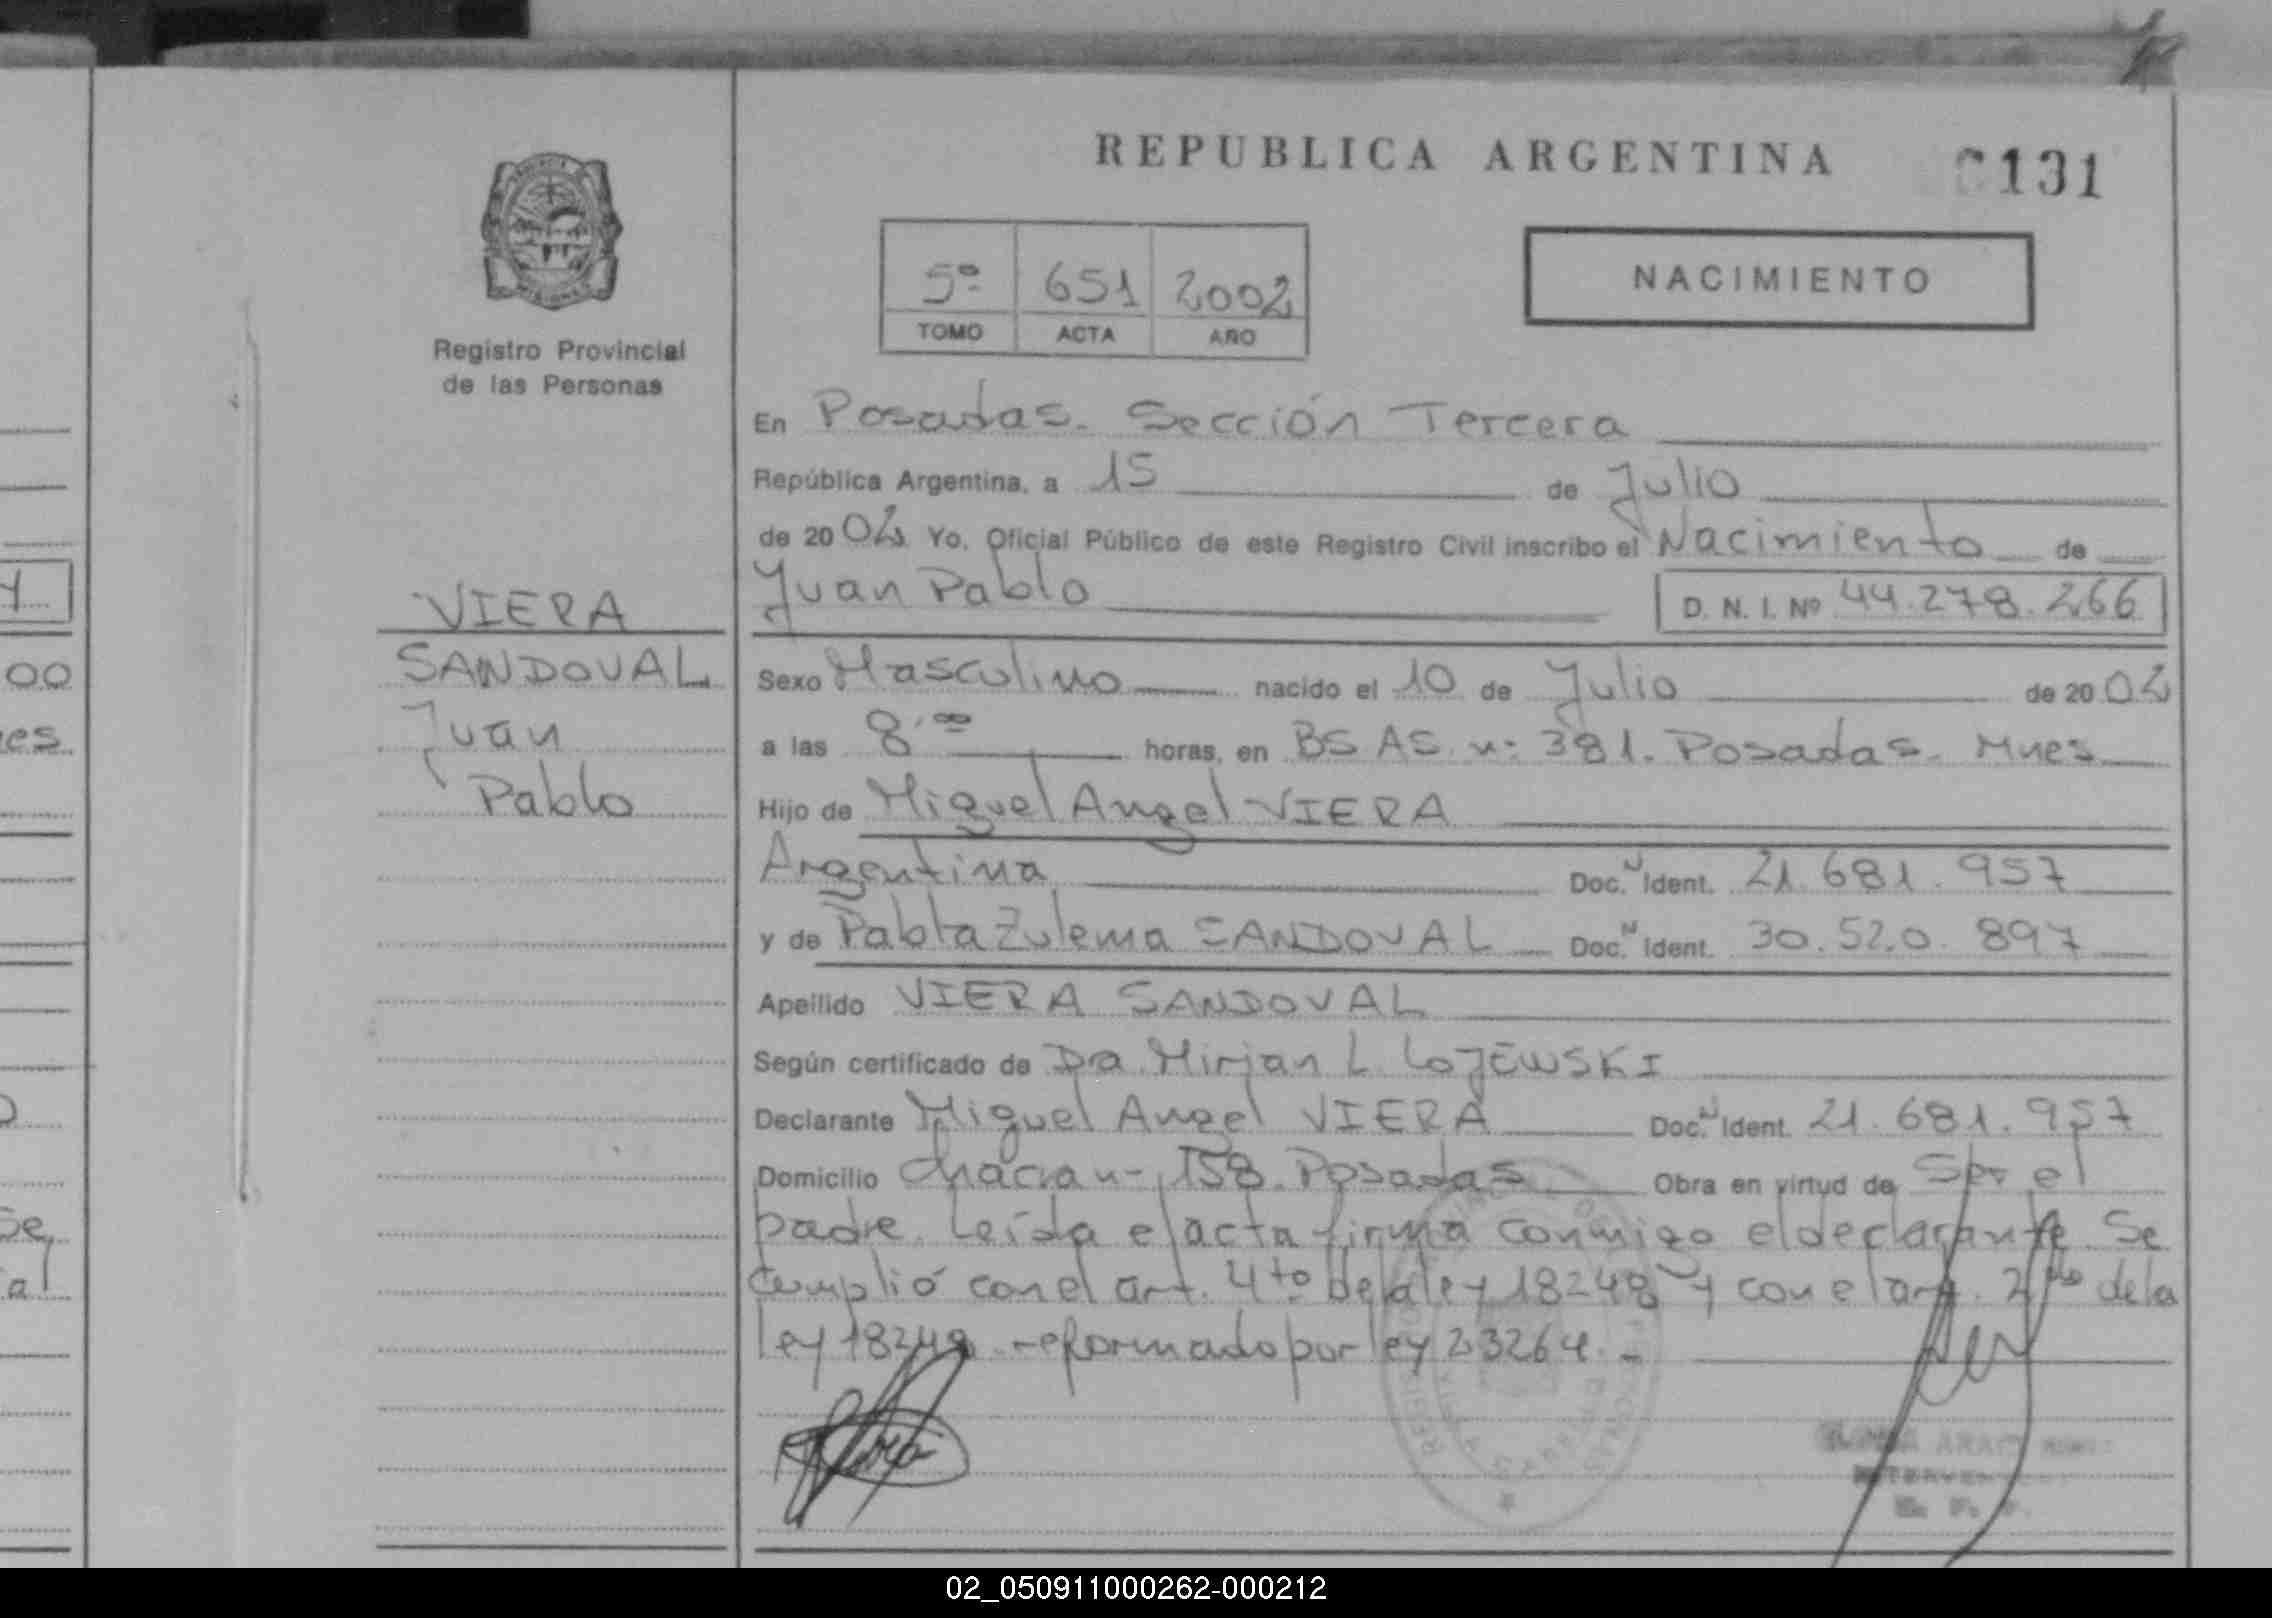 REPUBLICA ARGENTINA
131
5º 651 2002
TOMO ACTA AÑO
NACIMIENTO
Registro Provincial
de las Personas
VIERA
SANDOVAL
Juan
Pablo
En Posadas. Sección Tercera
República Argentina, a 15 de Julio
de 2002 Yo, Oficial Público de este Registro Civil inscribo el Nacimiento de
Juan Pablo D. N. I. Nº 44.278.266
Sexo Masculino nacido el 10 de Julio de 2002
a las 8,00 horas, en BS AS. nº 381. Posadas. Mnes
Hijo de Miguel Angel VIERA
Argentina Doc. N Ident. 21.681.957
y de Pabla Zulema SANDOVAL Doc. N Ident. 30.520.897
Apellido VIERA SANDOVAL
Según certificado de Dra. Mirian L. LOJEWSKI
Declarante Miguel Angel VIERA Doc. N Ident. 21.681.957
Domicilio 158. Posadas Obra en virtud de Ser el
padre. Leída el acta firma conmigo el declarante. Se
cumplió con el art. 4to de la ley 18248 y con el art. 2do de la
ley 18248 reformado por ley 23264.-
00
es
Se
al
02_050911000262-000212